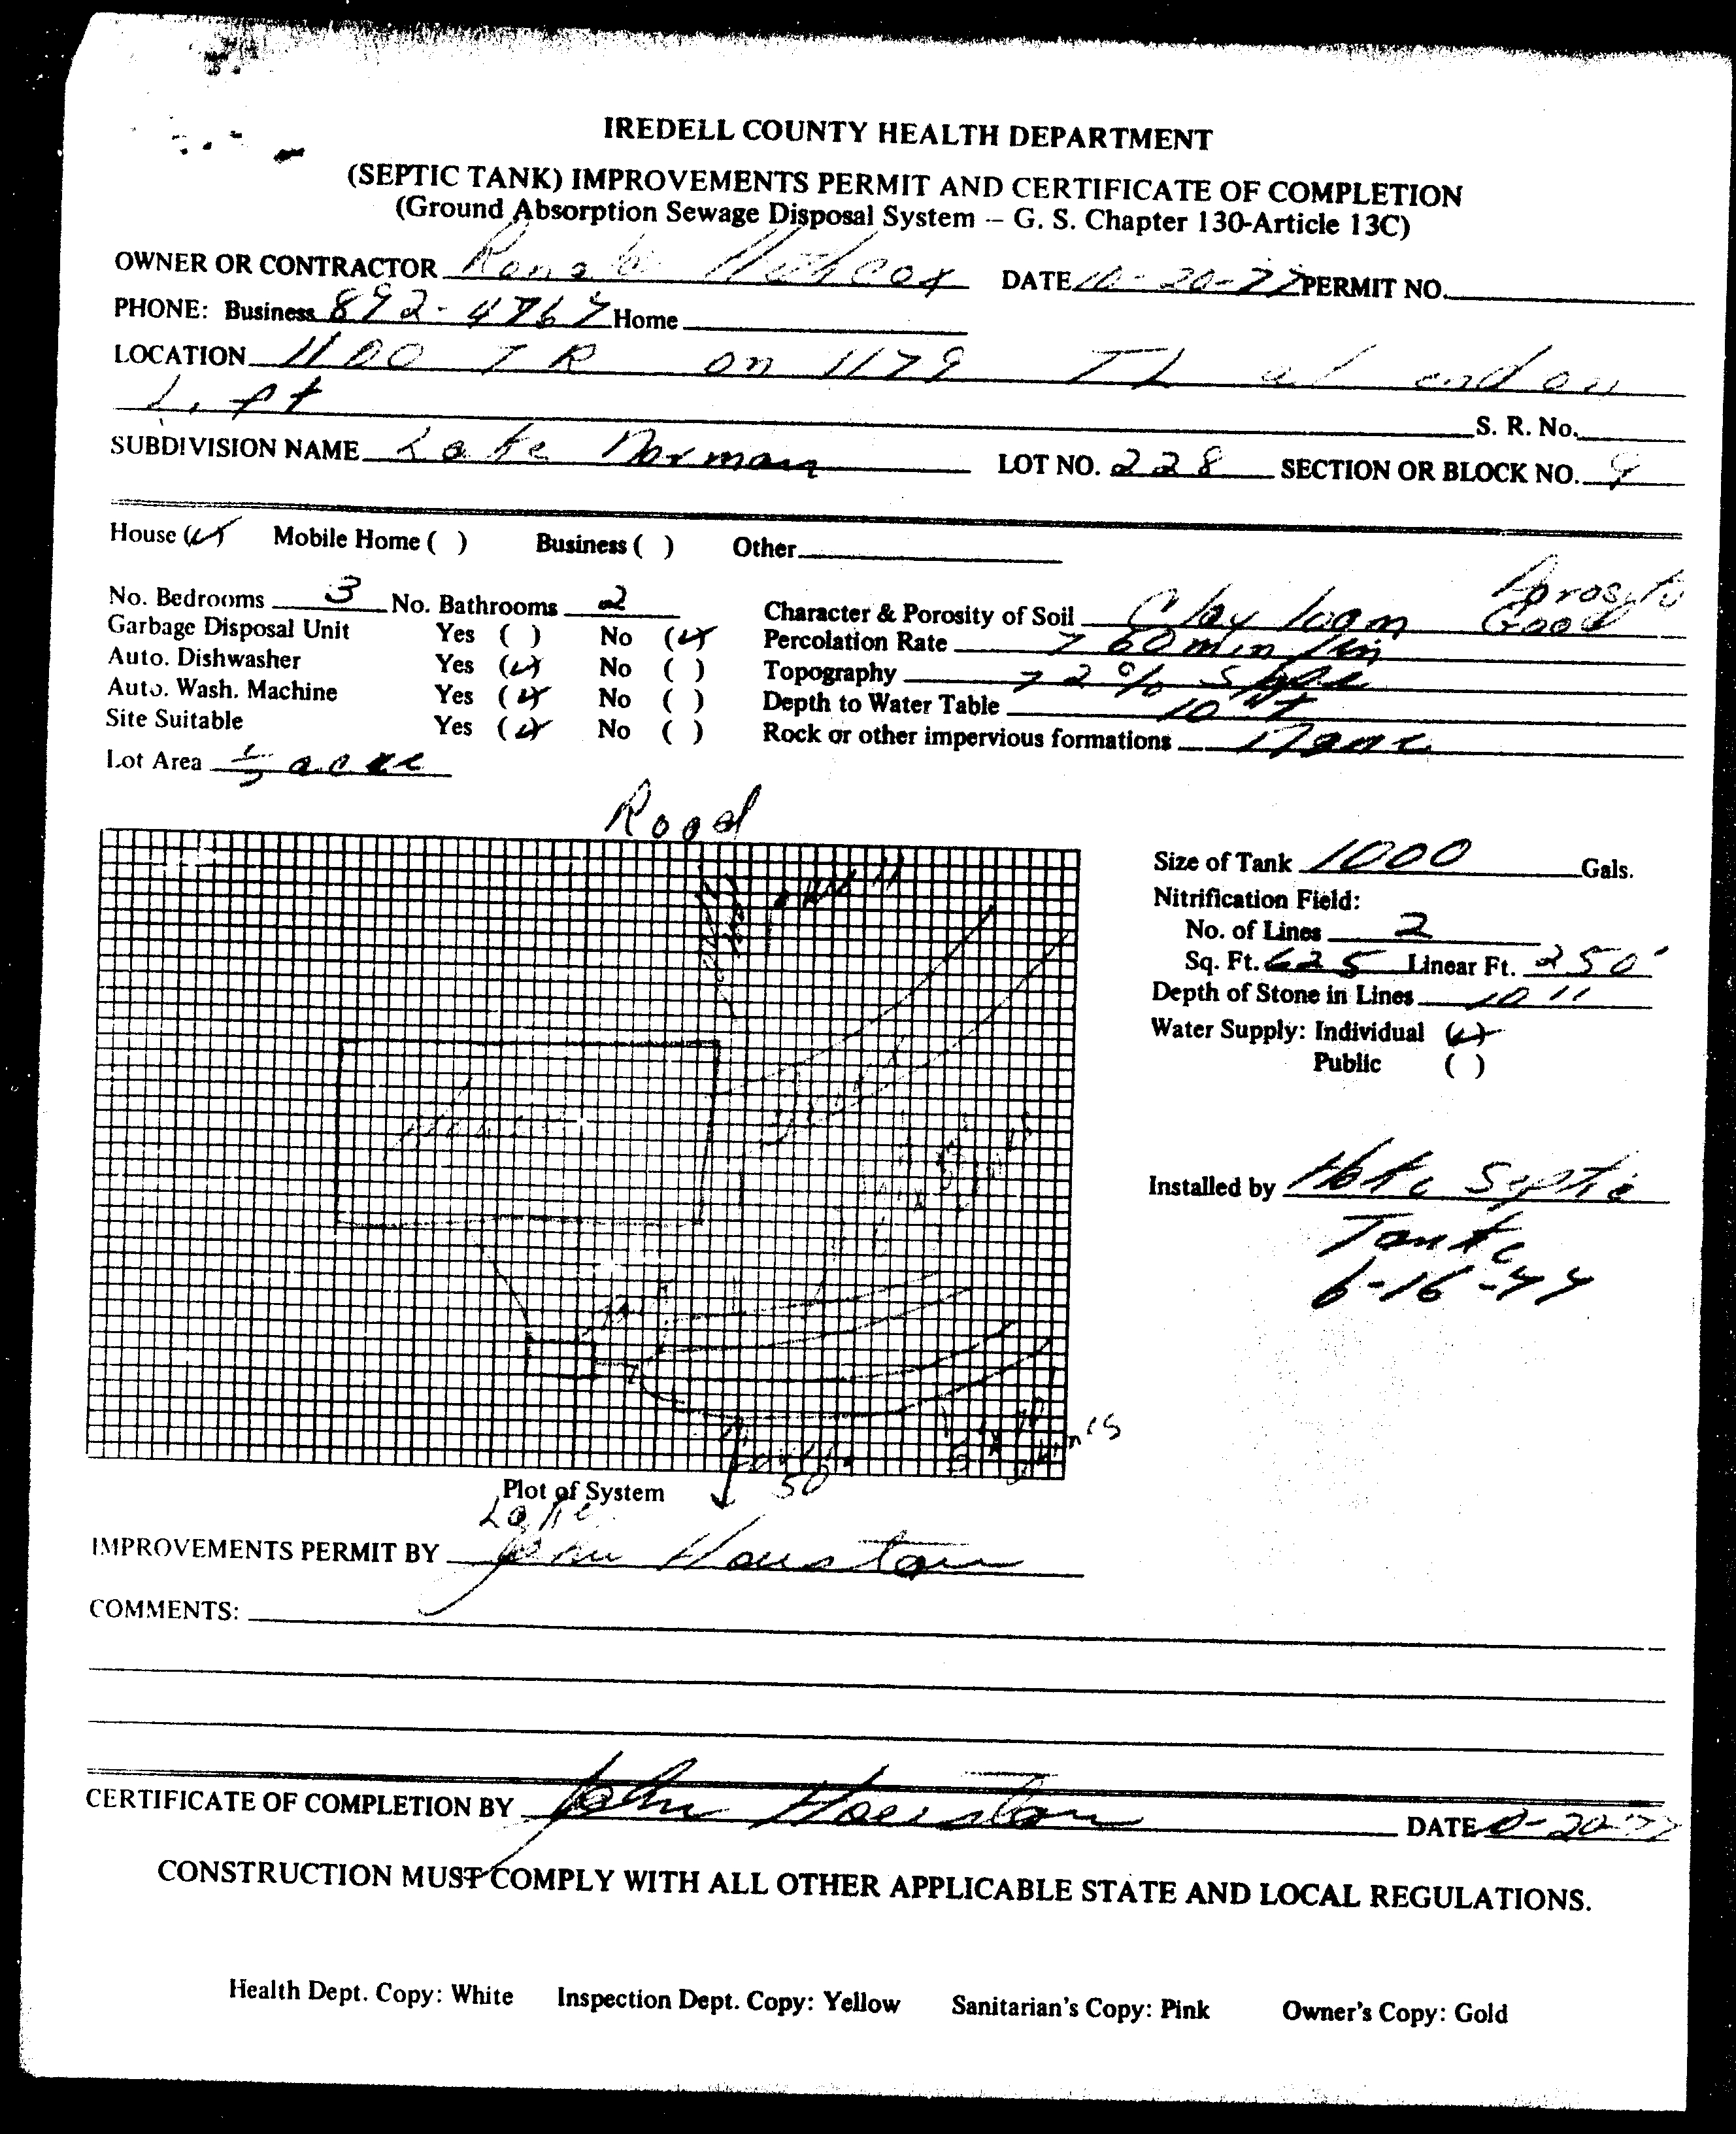 IREDELL COUNTY HEALTH DEPARTMENT
(SEPTIC TANK) IMPROVEMENTS PERMIT AND CERTIFICATE OF COMPLETION
(Ground Absorption Sewage Disposal System – G. S. Chapter 130-Article 13C)
OWNER OR CONTRACTOR DATE 10-20-77 PERMIT NO.
PHONE: Business 892-4767 Home
LOCATION 1100 TR on 1179 TL at end on
Left
S. R. No.
SUBDIVISION NAME Lake Norman LOT NO. 228 SECTION OR BLOCK NO. 9
House (✓) Mobile Home ( ) Business ( ) Other
No. Bedrooms 3 No. Bathrooms 2
Garbage Disposal Unit Yes ( ) No (✓)
Auto. Dishwasher Yes (✓) No ( )
Auto. Wash. Machine Yes (✓) No ( )
Site Suitable Yes (✓) No ( )
Lot Area acre
Porosity
Character & Porosity of Soil Clay loam Good
Percolation Rate > 60 min/in
Topography > 2% Slope
Depth to Water Table 10 ft
Rock or other impervious formations None
Road
Size of Tank 1000 Gals.
Nitrification Field:
No. of Lines 2
Sq. Ft. 625 Linear Ft. 250'
Depth of Stone in Lines 10"
Water Supply: Individual (✓)
Public ( )
Installed by Septic
Tank
50
Plot of System
Lake
IMPROVEMENTS PERMIT BY John Houston
COMMENTS:
CERTIFICATE OF COMPLETION BY John Houston DATE 10-20-77
CONSTRUCTION MUST COMPLY WITH ALL OTHER APPLICABLE STATE AND LOCAL REGULATIONS.
Health Dept. Copy: White Inspection Dept. Copy: Yellow Sanitarian's Copy: Pink Owner's Copy: Gold